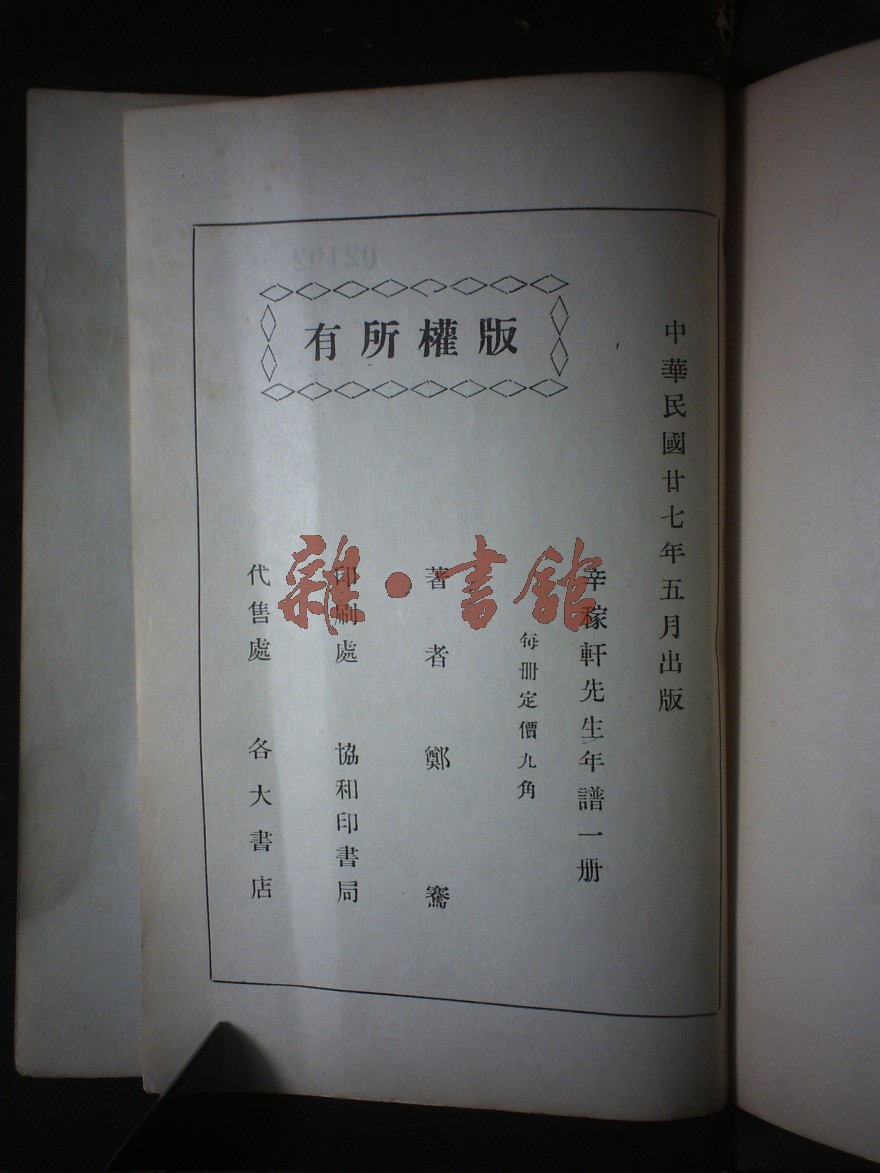 中華民國廿七年五月出版
辛稼軒先生年譜一册
每册定價九角
著者 鄭騫
印刷處 協和印書局
代售處 各大書店
版權所有
雜·書館